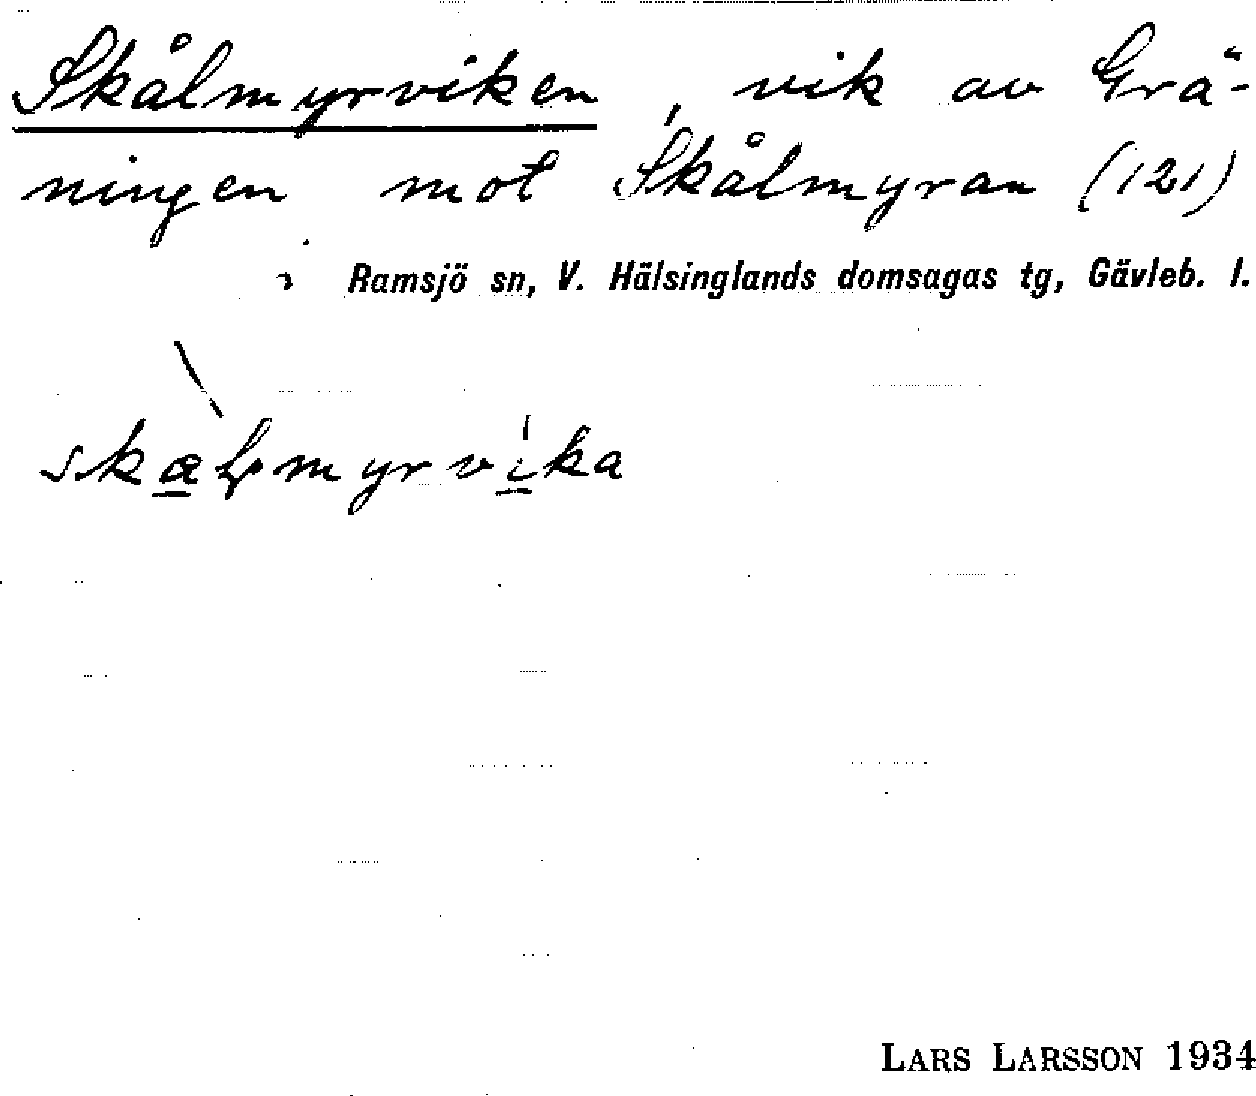 Skålmyrviken, vik av Grä-
ningen mot Skålmyran (121)
i Ramsjö sn, V. Hälsinglands domsagas tg, Gävleb. l.
LARS LARSSON 1934